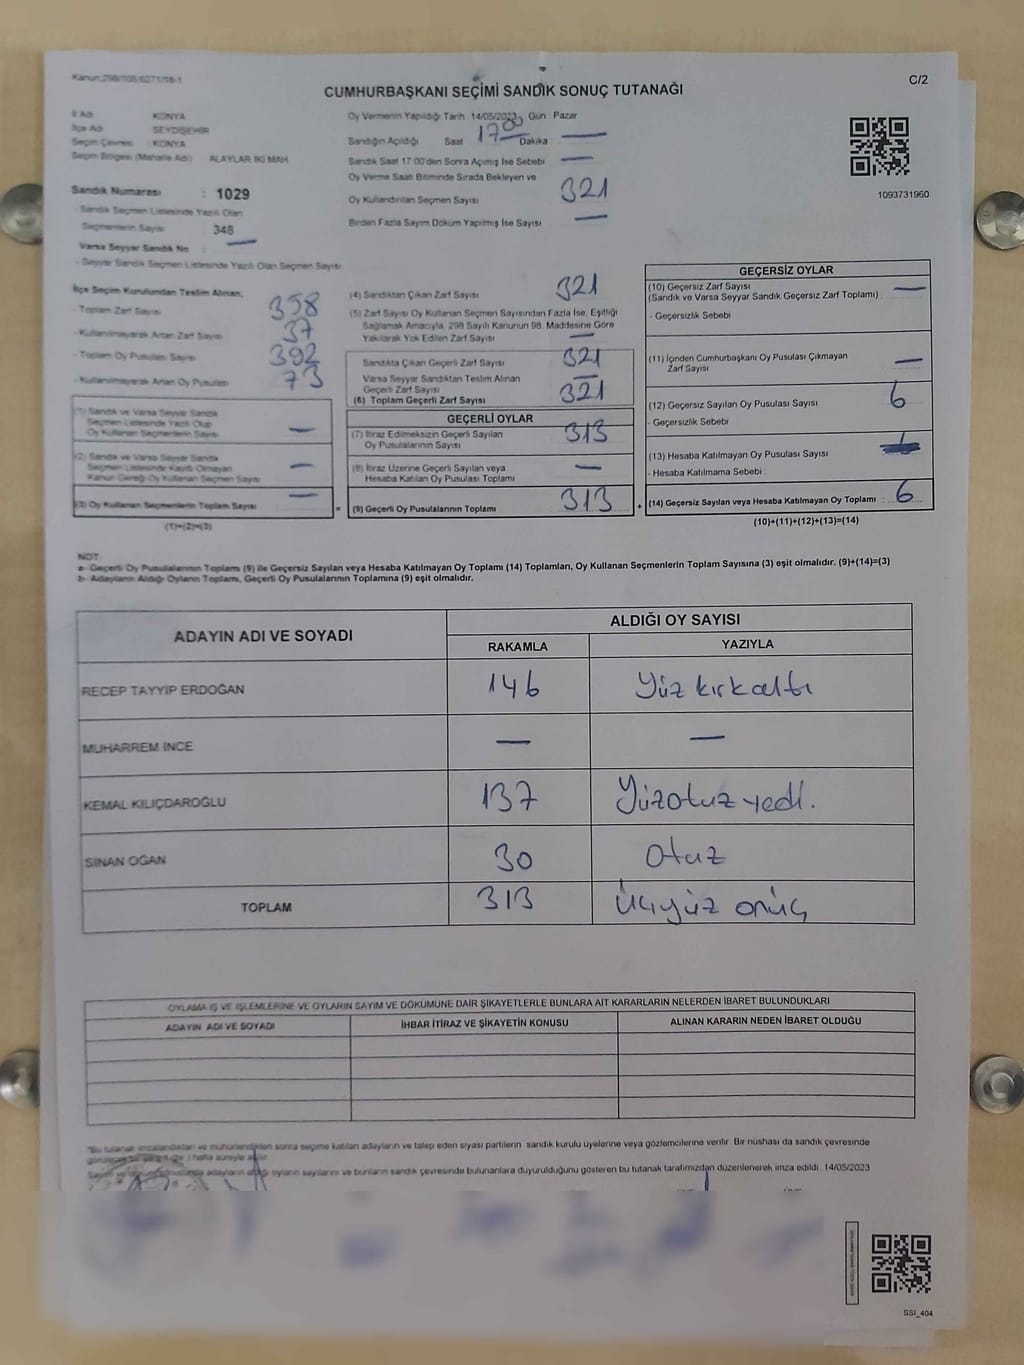 Kanun:298/105;6271/18-1
C/2
CUMHURBAŞKANI SEÇİMİ SANDIK SONUÇ TUTANAĞI
İl Adı KONYA
İlçe Adı SEYDİŞEHİR
Seçim Çevresi : KONYA
Seçim Bölgesi (Mahalle Adı) ALAYLAR İKİ MAH.
Sandık Numarası : 1029
- Sandık Seçmen Listesinde Yazılı Olan
Seçmenlerin Sayısı : 348
Varsa Seyyar Sandık No : —
- Seyyar Sandık Seçmen Listesinde Yazılı Olan Seçmen Sayısı
Oy Vermenin Yapıldığı Tarih 14/05/2023 Gün : Pazar
Sandığın Açıldığı Saat 17 00 Dakika —
Sandık Saat 17:00'den Sonra Açılmış İse Sebebi —
Oy Verme Saati Bitiminde Sırada Bekleyen ve
Oy Kullandırılan Seçmen Sayısı 321
Birden Fazla Sayım Döküm Yapılmış İse Sayısı —
1093731960
İlçe Seçim Kurulundan Teslim Alınan;
- Toplam Zarf Sayısı 358
- Kullanılmayarak Artan Zarf Sayısı 37
- Toplam Oy Pusulası Sayısı 392
- Kullanılmayarak Artan Oy Pusulası 73
(1) Sandık ve Varsa Seyyar Sandık
Seçmen Listesinde Yazılı Olup
Oy Kullanan Seçmenlerin Sayısı —
(2) Sandık ve Varsa Seyyar Sandık
Seçmen Listesinde Kayıtlı Olmayan
Kanun Gereği Oy Kullanan Seçmen Sayısı —
(3) Oy Kullanan Seçmenlerin Toplam Sayısı —
(1)+(2)=(3)
(4) Sandıktan Çıkan Zarf Sayısı 321
(5) Zarf Sayısı Oy Kullanan Seçmen Sayısından Fazla İse, Eşitliği
Sağlamak Amacıyla, 298 Sayılı Kanunun 98. Maddesine Göre
Yakılarak Yok Edilen Zarf Sayısı —
Sandıkta Çıkan Geçerli Zarf Sayısı 321
Varsa Seyyar Sandıktan Teslim Alınan
Geçerli Zarf Sayısı —
(6) Toplam Geçerli Zarf Sayısı 321
GEÇERLİ OYLAR
(7) İtiraz Edilmeksizin Geçerli Sayılan
Oy Pusulalarının Sayısı 313
(8) İtiraz Üzerine Geçerli Sayılan veya
Hesaba Katılan Oy Pusulası Toplamı —
= (9) Geçerli Oy Pusulalarının Toplamı 313
GEÇERSİZ OYLAR
(10) Geçersiz Zarf Sayısı —
(Sandık ve Varsa Seyyar Sandık Geçersiz Zarf Toplamı)
- Geçersizlik Sebebi
(11) İçinden Cumhurbaşkanı Oy Pusulası Çıkmayan
Zarf Sayısı —
(12) Geçersiz Sayılan Oy Pusulası Sayısı 6
- Geçersizlik Sebebi
(13) Hesaba Katılmayan Oy Pusulası Sayısı
- Hesaba Katılmama Sebebi :
+ (14) Geçersiz Sayılan veya Hesaba Katılmayan Oy Toplamı : 6
(10)+(11)+(12)+(13)=(14)
NOT:
a- Geçerli Oy Pusulalarının Toplamı (9) ile Geçersiz Sayılan veya Hesaba Katılmayan Oy Toplamı (14) Toplamları, Oy Kullanan Seçmenlerin Toplam Sayısına (3) eşit olmalıdır. (9)+(14)=(3)
b- Adayların Aldığı Oyların Toplamı, Geçerli Oy Pusulalarının Toplamına (9) eşit olmalıdır.
ADAYIN ADI VE SOYADI ALDIĞI OY SAYISI
RAKAMLA YAZIYLA
RECEP TAYYİP ERDOĞAN 146 Yüz kırk altı
MUHARREM İNCE — —
KEMAL KILIÇDAROĞLU 137 Yüzotuz yedi.
SİNAN OĞAN 30 Otuz
TOPLAM 313 Üçyüz onüç
OYLAMA İŞ VE İŞLEMLERİNE VE OYLARIN SAYIM VE DÖKÜMÜNE DAİR ŞİKAYETLERLE BUNLARA AİT KARARLARIN NELERDEN İBARET BULUNDUKLARI
ADAYIN ADI VE SOYADI İHBAR İTİRAZ VE ŞİKAYETİN KONUSU ALINAN KARARIN NEDEN İBARET OLDUĞU
*Bu tutanak imzalandıktan ve mühürlendikten sonra seçime katılan adayların ve talep eden siyasi partilerin sandık kurulu üyelerine veya gözlemcilerine verilir. Bir nüshası da sandık çevresinde
hafta süreyle asılır.
adayların aldığı oyların sayılarını ve bunların sandık çevresinde bulunanlara duyurulduğunu gösteren bu tutanak tarafımızdan düzenlenerek imza edildi. 14/05/2023
SSI_404